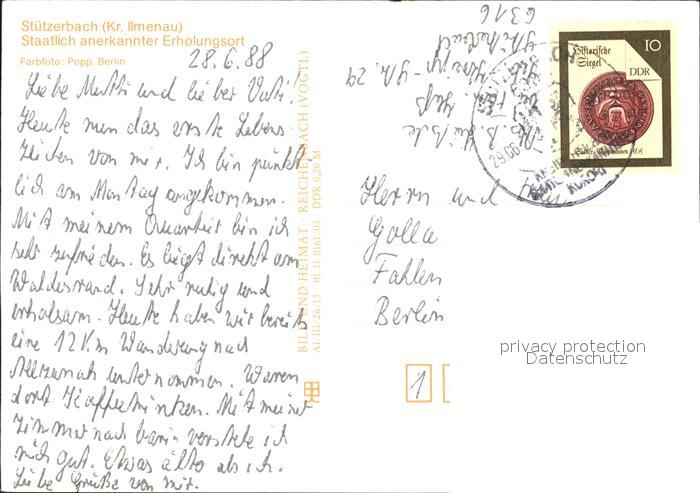 Stützerbach (Kr. Ilmenau)
Staatlich anerkannter Erholungsort
Farbfoto: Popp, Berlin
28.6.88
Liebe Mutti und lieber Vati.
Heute nun das erste Lebens
Zeichen von mir. Ich bin pünkt
lich am Montag angekommen.
Mit meinem Quartier bin ich
sehr zufrieden. Es liegt direkt am
Waldesrand. Sehr ruhig und
erholsam. Heute haben wir bereits
eine 12 Km Wanderung nach
Allzunah unternommen. Waren
dort Kaffeetrinken. Mit meiner
Zimmernachbarin verstehe ich
mich gut. Etwas älter als ich.
Liebe Grüße von mir.
BILD UND HEIMAT REICHENBACH (VOGTL)
A1/III/26/13 01 11 0161/03 DDR 0,20 M
6316
Historische
Siegel
10
DDR
29.06
Herrn und
Golla
Fahlen
Berlin
1
privacy protection
Datenschutz